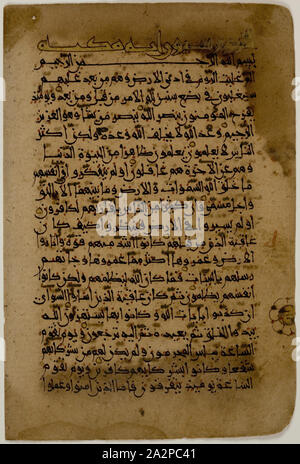 وايه مكيه
بسم الله الرحمن الرحيم
الم غلبت الروم في ادنى الارض وهم من بعد غلبهم
سيغلبون في بضع سنين لله الامر من قبل ومن بعد ويومئذ
يفرح المومنون بنصر الله ينصر من يشا وهو العزيز
الرحيم وعد الله لا يخلف الله وعده ولكن اكثر
الناس لا يعلمون يعلمون ظاهرا من الحيوة الدنيا
وهم عن الاخرة هم غافلون او لم يتفكروا في انفسهم
ما خلق الله السموات والارض وما بينهما الا بالحق
واجل مسمى وان كثيرا من الناس بلقا ربهم لكافرون
او لم يسيروا في الارض فينظروا كيف كان
عاقبة الذين من قبلهم كانوا اشد منهم قوة واثاروا
الارض وعمروها اكثر مما عمروها وجاتهم
رسلهم بالبينات فما كان الله ليظلمهم ولكن كانوا
انفسهم يظلمون ثم كان عاقبة الذين اساوا السواى
ان كذبوا بايات الله وكانوا بها يستهزون الله
يبدوا الخلق ثم يعيده ثم اليه ترجعون ويوم تقوم
الساعة يبلس المجرمون ولم يكن لهم من شركايهم
شفعوا وكانوا بشركايهم كافرين ويوم تقوم
الساعة يوميذ يتفرقون فاما الذين امنوا وعملوا
alamy
Image ID: 2A2PC41
www.alamy.com